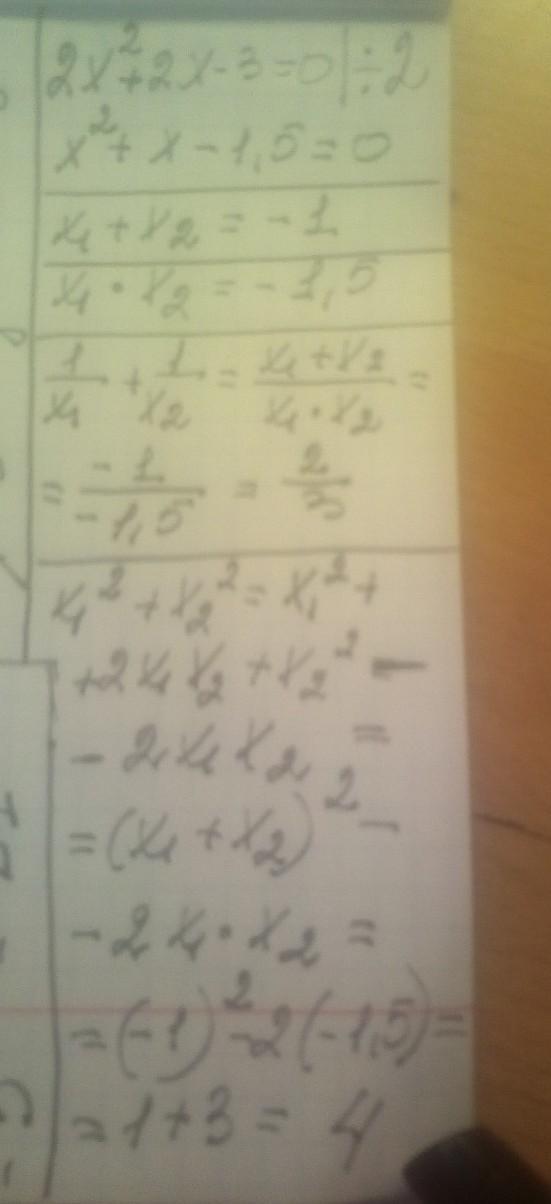 2x²+2x-3=0|÷2
x²+x-1,5=0
x₁+x₂=-1
x₁·x₂=-1,5
1/x₁+1/x₂=(x₁+x₂)/(x₁·x₂)=
=-1/-1,5=2/3
x₁²+x₂²=x₁²+
+2x₁x₂+x₂²-
-2x₁x₂=
=(x₁+x₂)²-
-2x₁·x₂=
=(-1)²-2(-1,5)=
=1+3=4